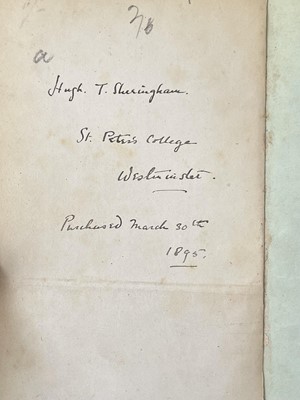 7/6
a
Hugh. T. Sheringham.
St. Peter's College
Westminster.
Purchased March 30th
1895.